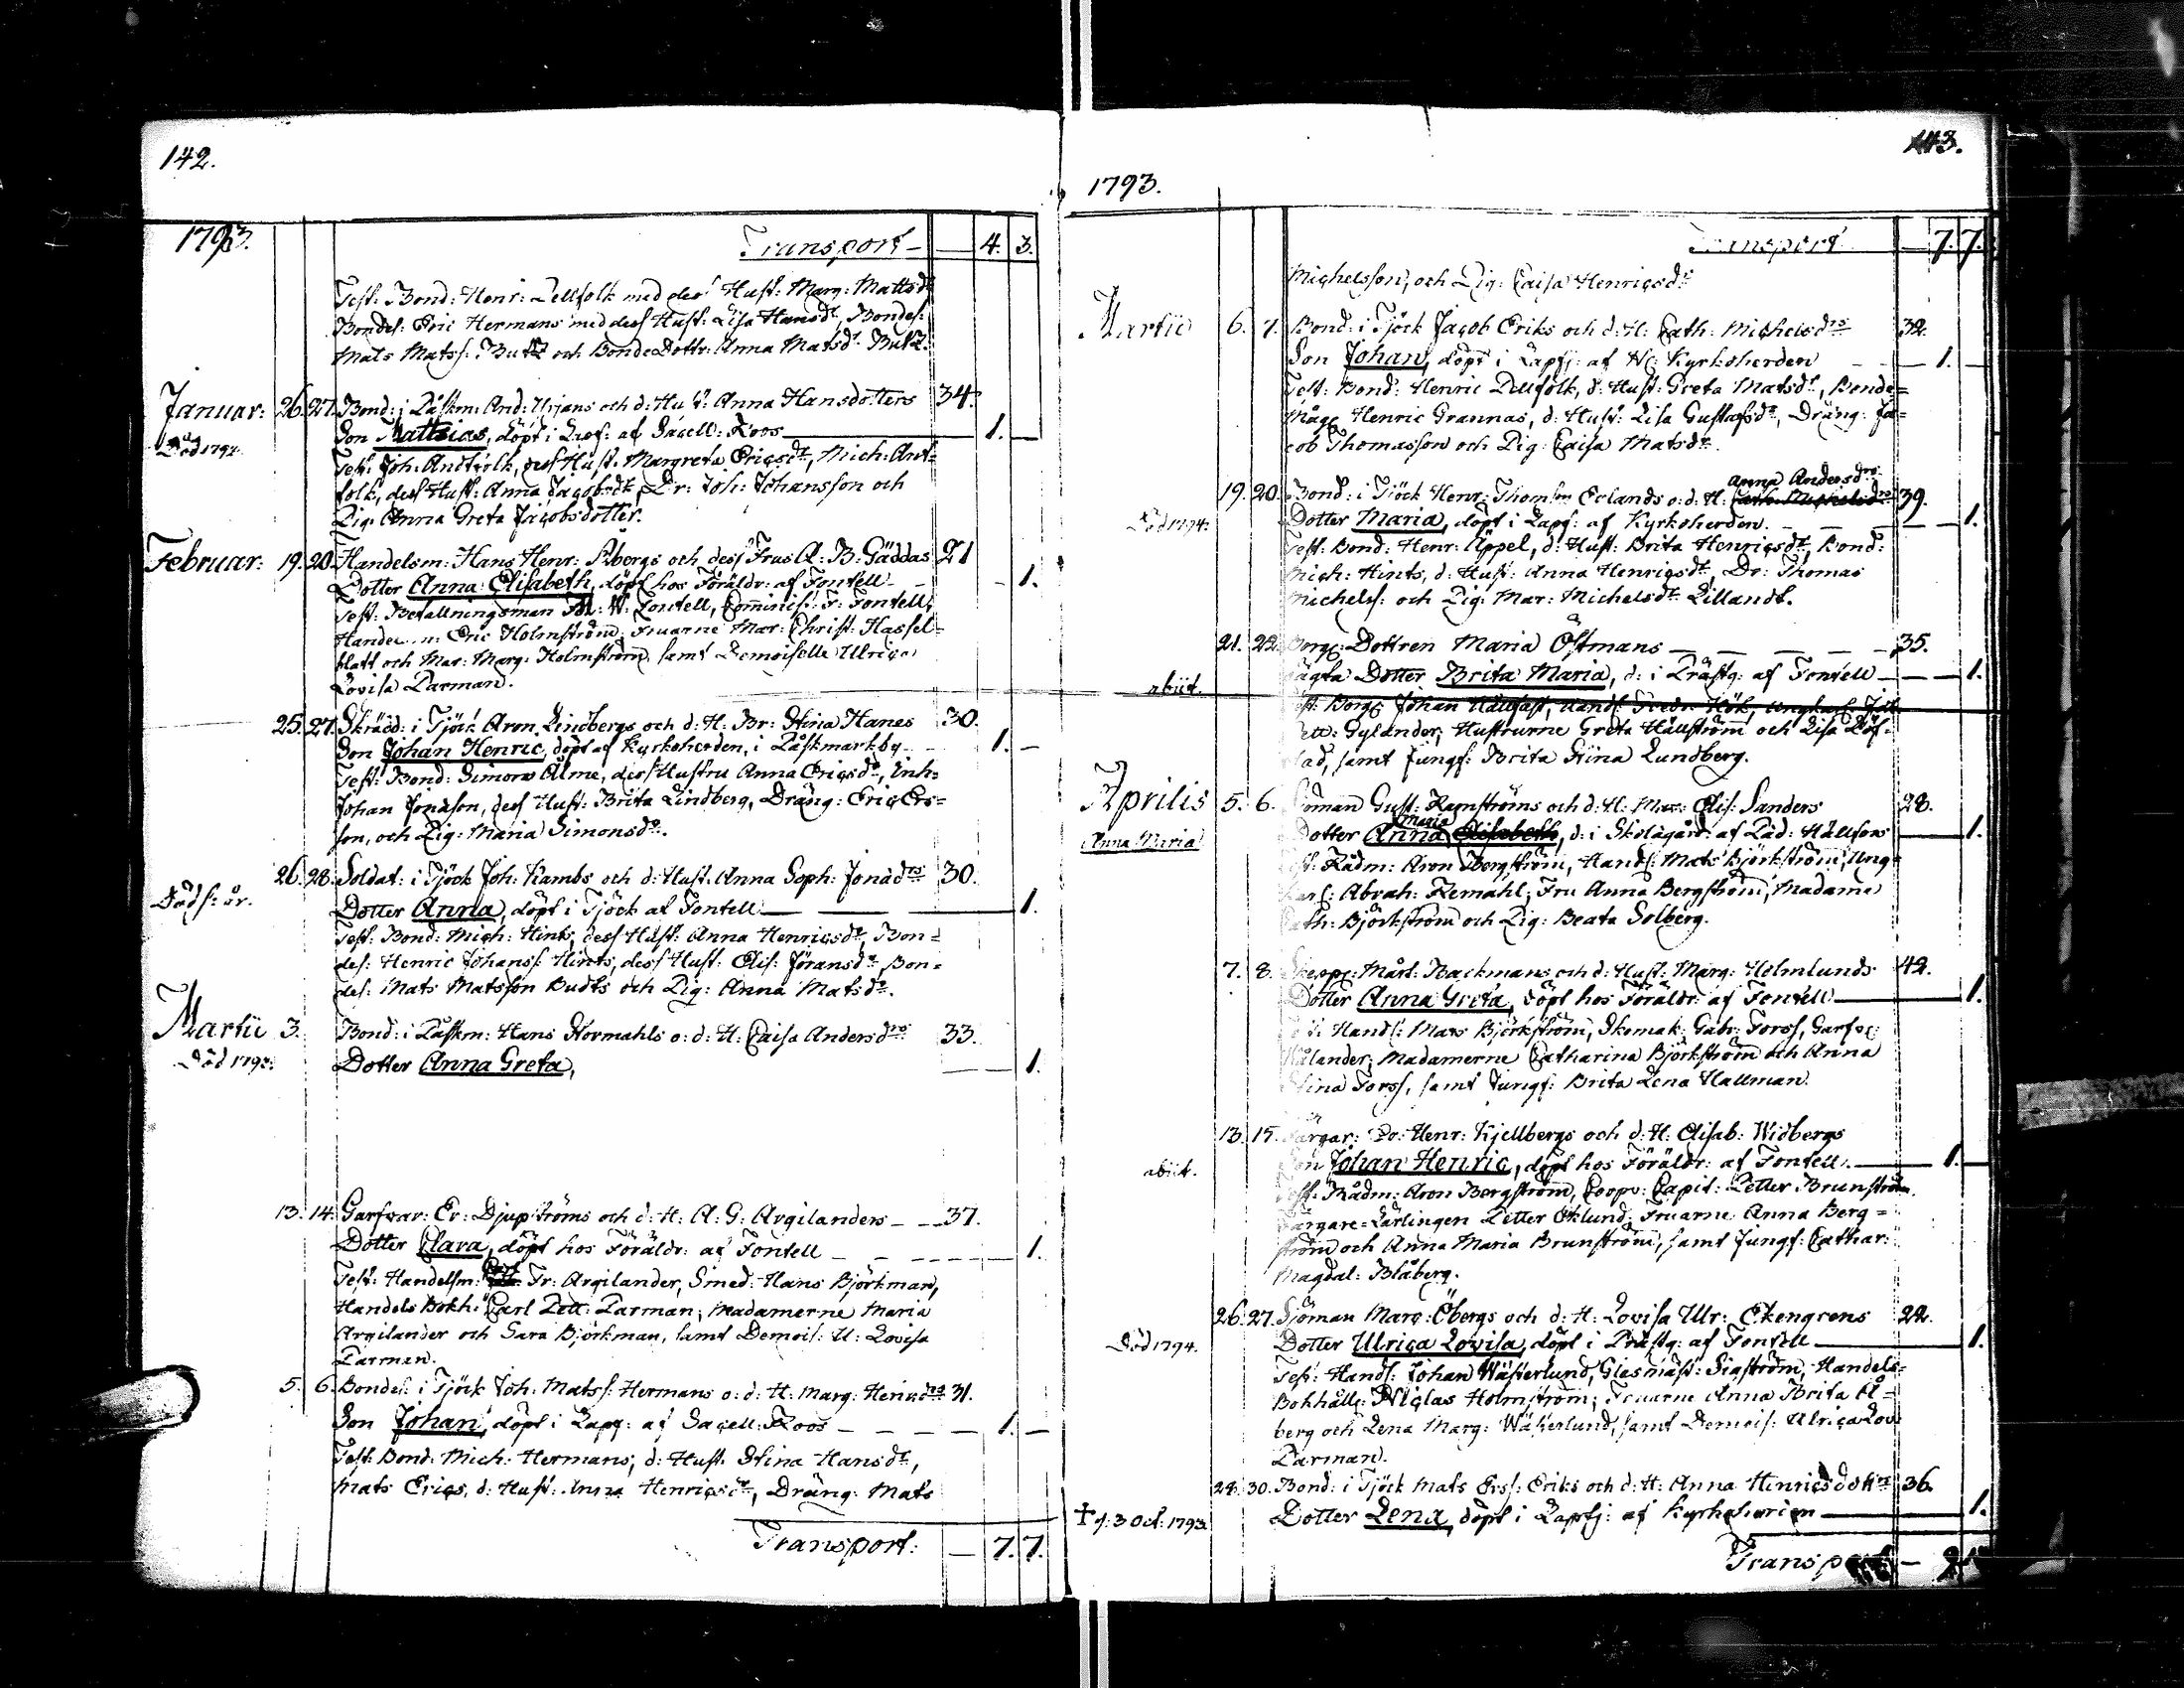 142.
1793. Transport — 4. 3.
Test: Bond: Henr: Lellfolk med des Hust: Marg: Mattsdr
Bondes: Eric Hermans med dess Hust: Lisa Hansdr, Bondes:
Mats Matss: Butz och BondeDottr: Anna Matsdr Butz.
Januar: 26. 27. Bond: i Påskm: And: Urjans och d: Hust: Anna Hansdotters 34.
Död 1794. Son Matthias, döpt i Capf: af Sacell: Roos — 1. —
Test: Joh: Antfolk, dess Hust: Margreta Ericsdr, Mich: Ant=
folk, dess Hust: Anna Jacobsdr, Dr: Joh: Johansson och
Pig: Anna Greta Jacobsdotter.
Februar: 19. 20. Handelsm: Hans Henr: Åbergs och dess Frus A: B: Gäddas 21
Dotter Anna Elisabeth, döpt hos Föräldr: af Fontell — 1.
Test: Befallningsman W: Fontell, Comminist: F: Fontell,
Handelsm: Eric Holmström, Fruarne Mar: Christ: Hassel=
blatt och Mar: Marg: Holmström samt Demoiselle Ulrica
Lovisa Parman.
25. 27. Skrädd: i Tjöck Aron Lindbergs och d: H: Br: Stina Hanes 30.
Son Johan Henric, döpt af Kyrkoherden, i Påskmarkby — 1. —
Test: Bond: Simon Ålme, dess Hustru Anna Ericsdr, Inh:
Johan Jonasson, dess Hust: Brita Lindberg, Dräng: Eric Ers=
son, och Pig: Maria Simonsdr.
26. 28. Soldat: i Tjöck Joh: Kambs och d: Hust: Anna Soph: Jonædrs 30.
Död s: år. Dotter Anna, döpt i Tjöck af Fontell — 1.
Test: Bond: Mich: Hints, dess Hust: Anna Henricsdr, Bon=
des: Henric Johanss: Hints, dess Hust: Elis: Jöransdr Bon=
des: Mats Matsson Budts och Pig: Anna Matsdr.
Martii 3. Bond: i Påskm: Hans Stormahls o: d: H: Caisa Andersdrs 33.
Död 1793. Dotter Anna Greta, — 1.
13. 14. Garfvar: Er: Djupströms och d: H: A: G: Argilanders — 37.
Dotter Clara, döpt hos Föräldr: af Fontell — 1.
Test: Handelsm: Fr: Argilander, Smed: Hans Björkman,
Handels Bokh: Carl Pett: Parman, Madamerne Maria
Argilander och Sara Björkman, samt Demois: U: Lovisa
Parman.
5. 6. Bondes: i Tjöck Joh: Matss: Hermans o: d: H: Marg: Heinrdrs 31.
Son Johan, döpt i Capf: af Sacell: Roos — 1. —
Test: Bond: Mich: Hermans, d: Hust: Stina Hansdr,
Mats Erics, d: Hust: Anna Henricsdr, Dräng: Mats
Transport: — 7. 7.
143.
1793.
Transport — 7. 7.
Michelsson, och Pig: Caisa Henricsdr
Martii 6. 7. Bond: i Tjöck Jacob Eriks och d: H: Cath: Michelsdrs 32.
Son Johan, döpt i Capf: af Hr Kyrkoherden — 1. —
Test: Bond: Henric Lellfolk, d: Hust: Greta Matsdr, Bonde=
Måg Henric Grannas, d: Hust: Lisa Gustafsdr, Dräng: Ja=
cob Thomasson och Pig: Caisa Matsdr.
Anna Andersdrs
19. 20. Bond: i Tjöck Henr: Thomsson Erlands o: d: H: Cath: Michelsdrs 39.
Död 1794. Dotter Maria, döpt i Capf: af Kyrkoherden. — 1.
Test: Bond: Henr: Äppel, d: Hust: Brita Henricsdr, Bond:
Mich: Hints, d: Hust: Anna Henricsdr, Dr: Thomas
Michelss: och Pig: Mar: Michelsdr Lillandt.
21. 22. Borg: Dottren Maria Östmans — 35.
abiit. oägta Dotter Brita Maria, d: i Prästg: af Fontell — 1.
Test: Borg: Johan Hällfast, Handl:
Pett: Gylander, Hustrurne Greta Hällström och Lisa Löf=
blad, samt Jungf: Brita Stina Lundberg.
Aprilis 5. 6. Sjöman Gust: Renströms och d: H: Mar: Elis: Sanders 28.
Maria
Anna Maria Dotter Anna Elisabeth, d: i Skolägård: af Päd: Hällfors — 1.
Test: Rådm: Aron Bergström, Handl: Mats Björkström, Ung=
karl: Abrah: Remahl, Fru Anna Bergström, Madame
Cath: Björkström och Pig: Beata Solberg.
7. 8. Skepp: Mårt: Backmans och d: Hust: Marg: Holmlunds 42.
Dotter Anna Greta, döpt hos Föräldr: af Fontell — 1.
Test: Handl: Mats Björkström, Skomak: Gabr: Forss, Garfv:
Hålander, Madamerne Catharina Björkström och Anna
Stina Forss, samt Jungf: Brita Lena Hallman.
13. 15. Färgar: Henr: Kjellbergs och d: H: Elisab: Widbergs
abiit. Son Johan Henric, döpt hos Föräldr: af Fontell. — 1. —
Test: Rådm: Aron Bergström, Coopv: Capit: Petter Brunström,
Färgare=Lärlingen Petter Eklund, Fruarne Anna Berg=
ström och Anna Maria Brunström, samt Jungf: Cathar:
Magdal: Blåberg.
26. 27. Sjöman Marc: Öbergs och d: H: Lovisa Ulr: Ekengrens 22.
Död 1794. Dotter Ulrica Lovisa, döpt i Prästg: af Fontell — 1.
Test: Handl: Johan Wästerlund, Glasmäst: Sigström, Handels=
Bokhåll: Niclas Holmström, Fruarne Anna Brita Å=
berg och Lena Marg: Wästerlund, samt Demois: Ulrica Lov:
Parman.
28. 30. Bond: i Tjöck Mats Erss: Eriks och d: H: Anna Henricsdottrs 36.
† d: 3 Oct: 1793. Dotter Lena, döpt i Capf: af Kyrkoherden — 1.
Transport —